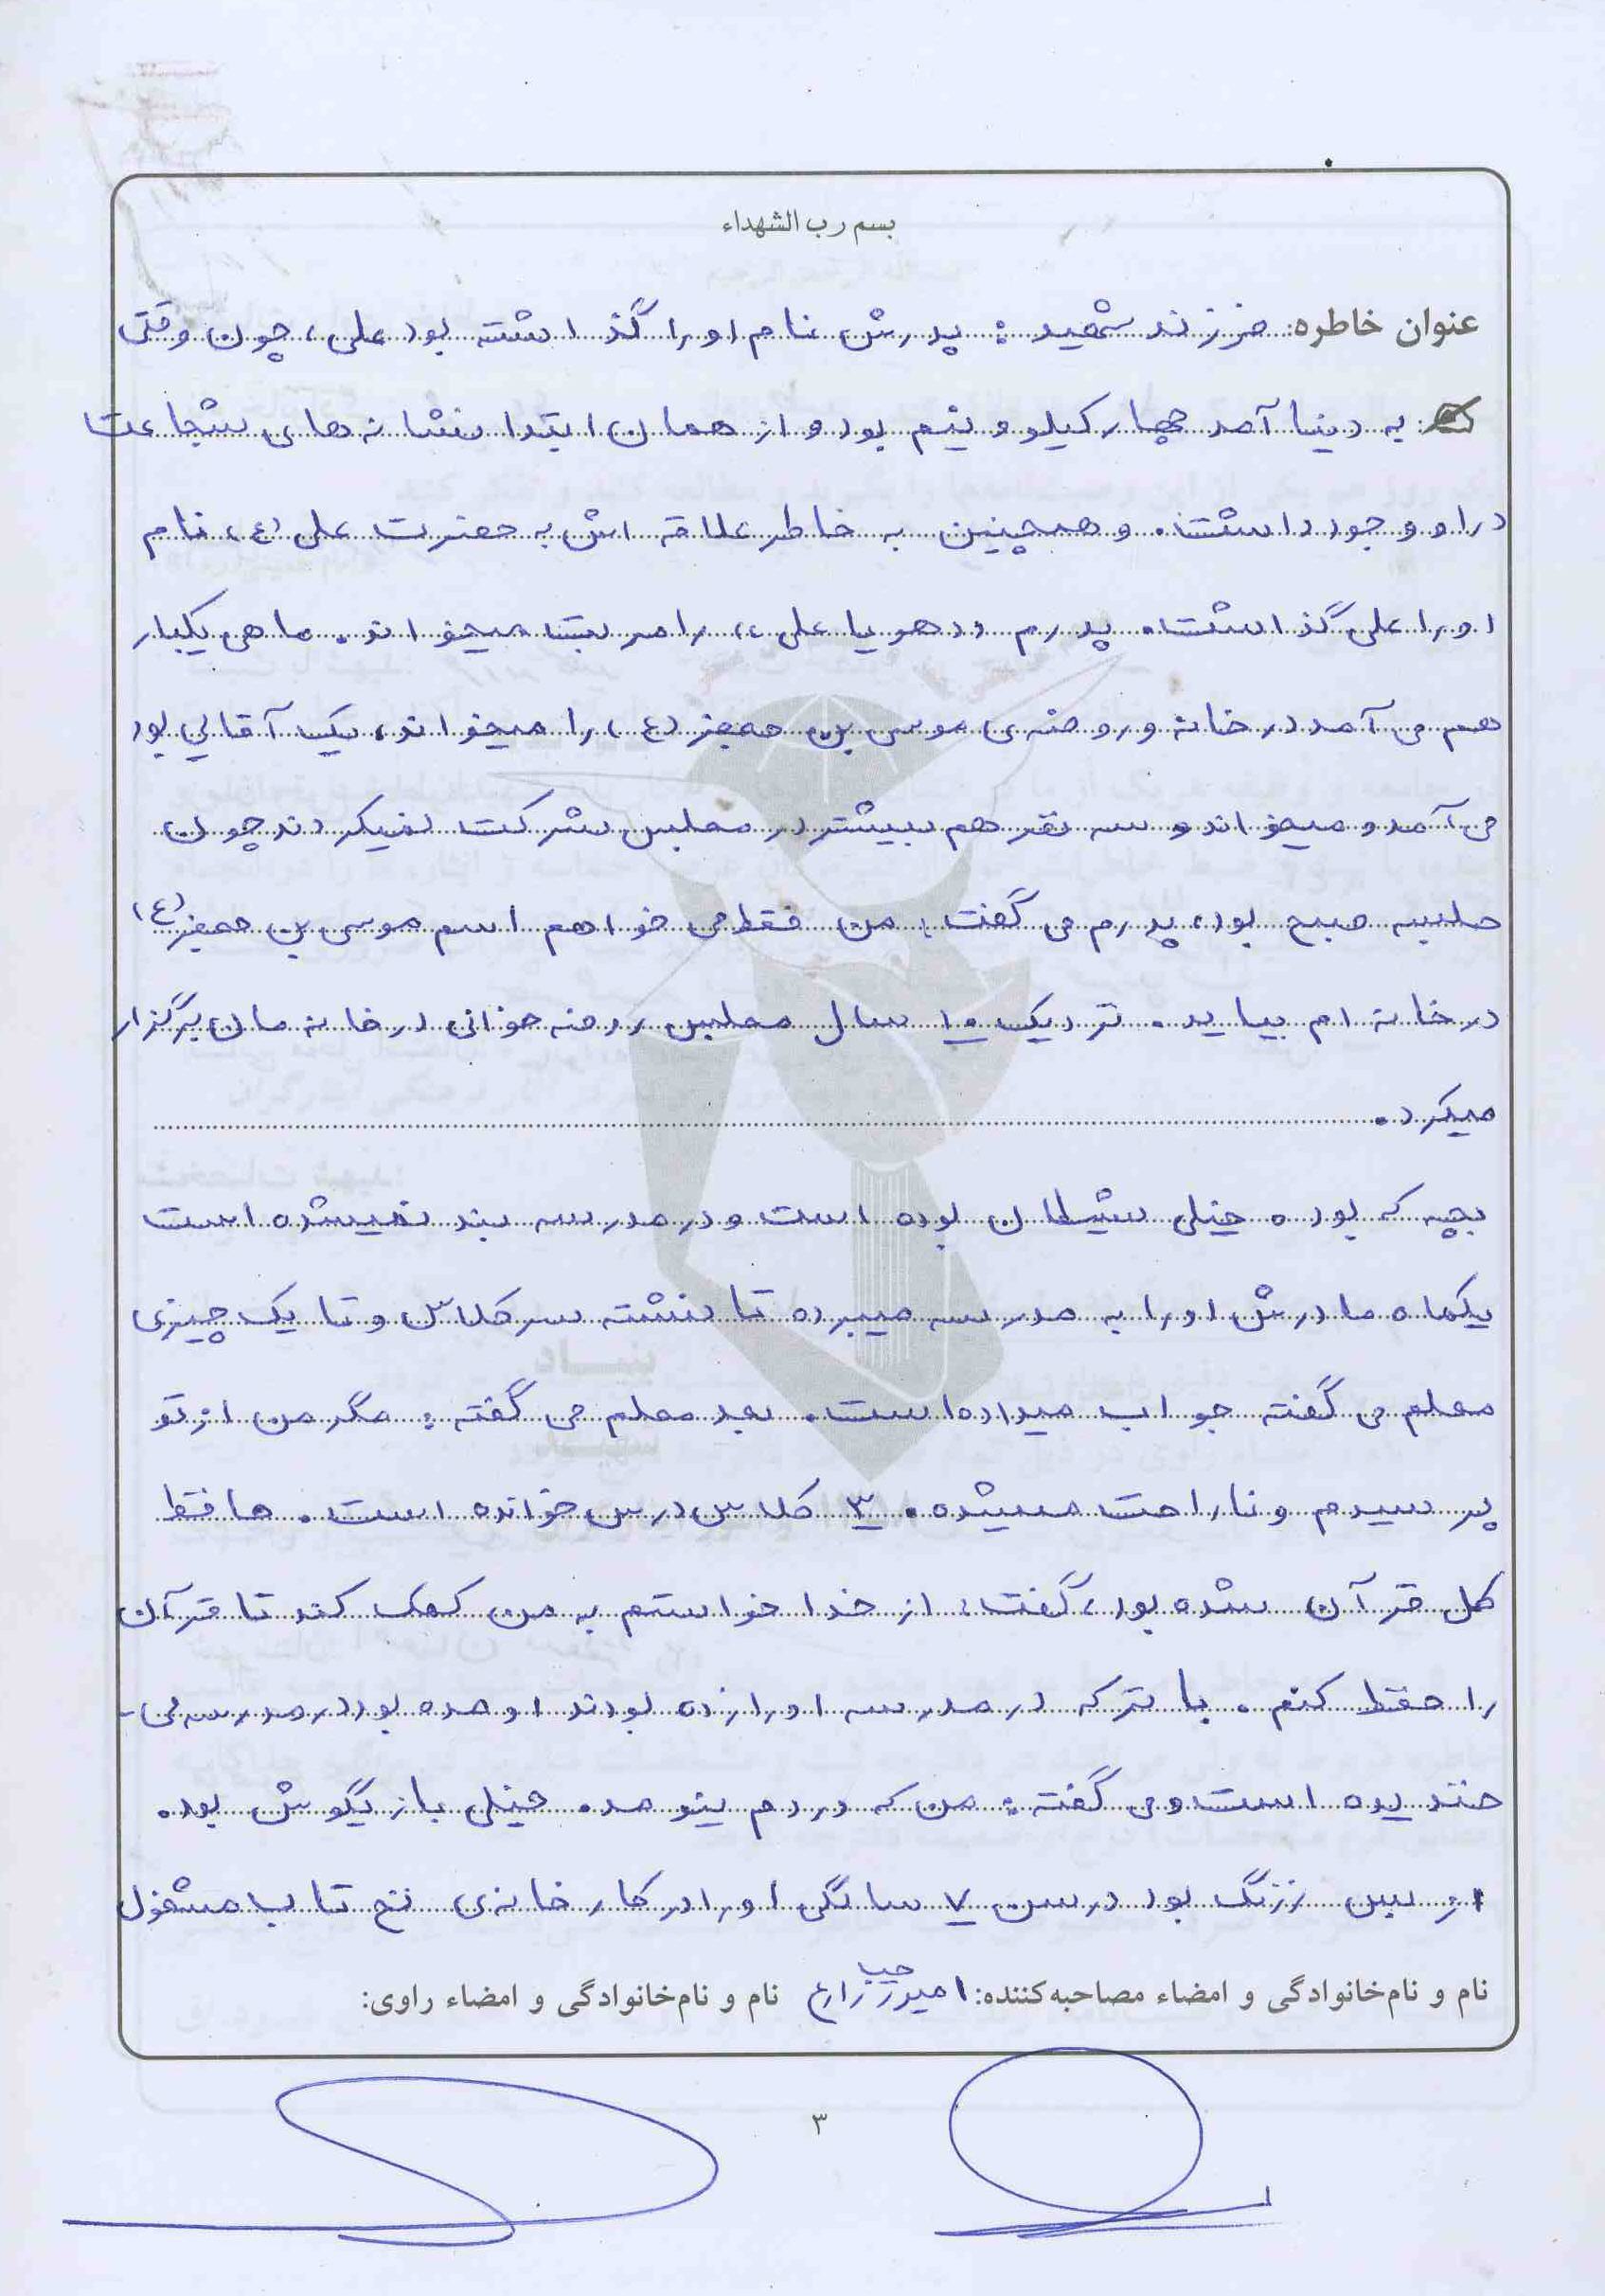 بسم رب الشهداء
عنوان خاطره: فرزند شهید : پدرش نام او را گذاشته بود علی، چون وقتی
به دنیا آمد چهار کیلو و نیم بود و از همان ابتدا نشانه های شجاعت
در او وجود داشت. و همچنین به خاطر علاقه اش به حضرت علی (ع)، نام
او را علی گذاشت. پدرم ((هو یا علی)) را مرتب میخواند. ماهی یکبار
هم می آمد در خانه و روضه ی موسی بن جعفر (ع) را میخواند، یک آقایی بود
می آمد و میخواند و سه نفر هم بیشتر در مجلس شرکت نمیکردند چون
جلسه صبح بود، پدرم می گفت: من فقط می خواهم اسم موسی بن جعفر (ع)
در خانه ام بیاید. نزدیک ۱۰ سال مجلس روضه خوانی در خانه مان برگزار
میکرد.
بچه که بوده خیلی شیطان بوده است و در مدرسه بند نمیشده است
یکماه مادرش او را به مدرسه میبرده تا نشته سر کلاس و تا یک چیزی
معلم می گفته جواب میداده است. بعد معلم می گفته : مگر من از تو
پرسیدم و ناراحت میشده. ۳ کلاس درس خوانده است. حافظ
کل قرآن شده بود، گفت: از خدا خواستم به من کمک کند تا قرآن
را حفظ کنم. با ترکه در مدرسه او را زده بودند اومده بود در مدرسه می-
خندیده است و می گفته : من که دردم ینومده. خیلی بازیگوش بوده.
از بس زرنگ بود در سن ۷ سالگی او را در کارخانه ی نخ تابی مشغول
نام و نام‌خانوادگی و امضاء مصاحبه‌کننده: امیررضا زارع نام و نام‌خانوادگی و امضاء راوی:
۳
بنیاد
شهید